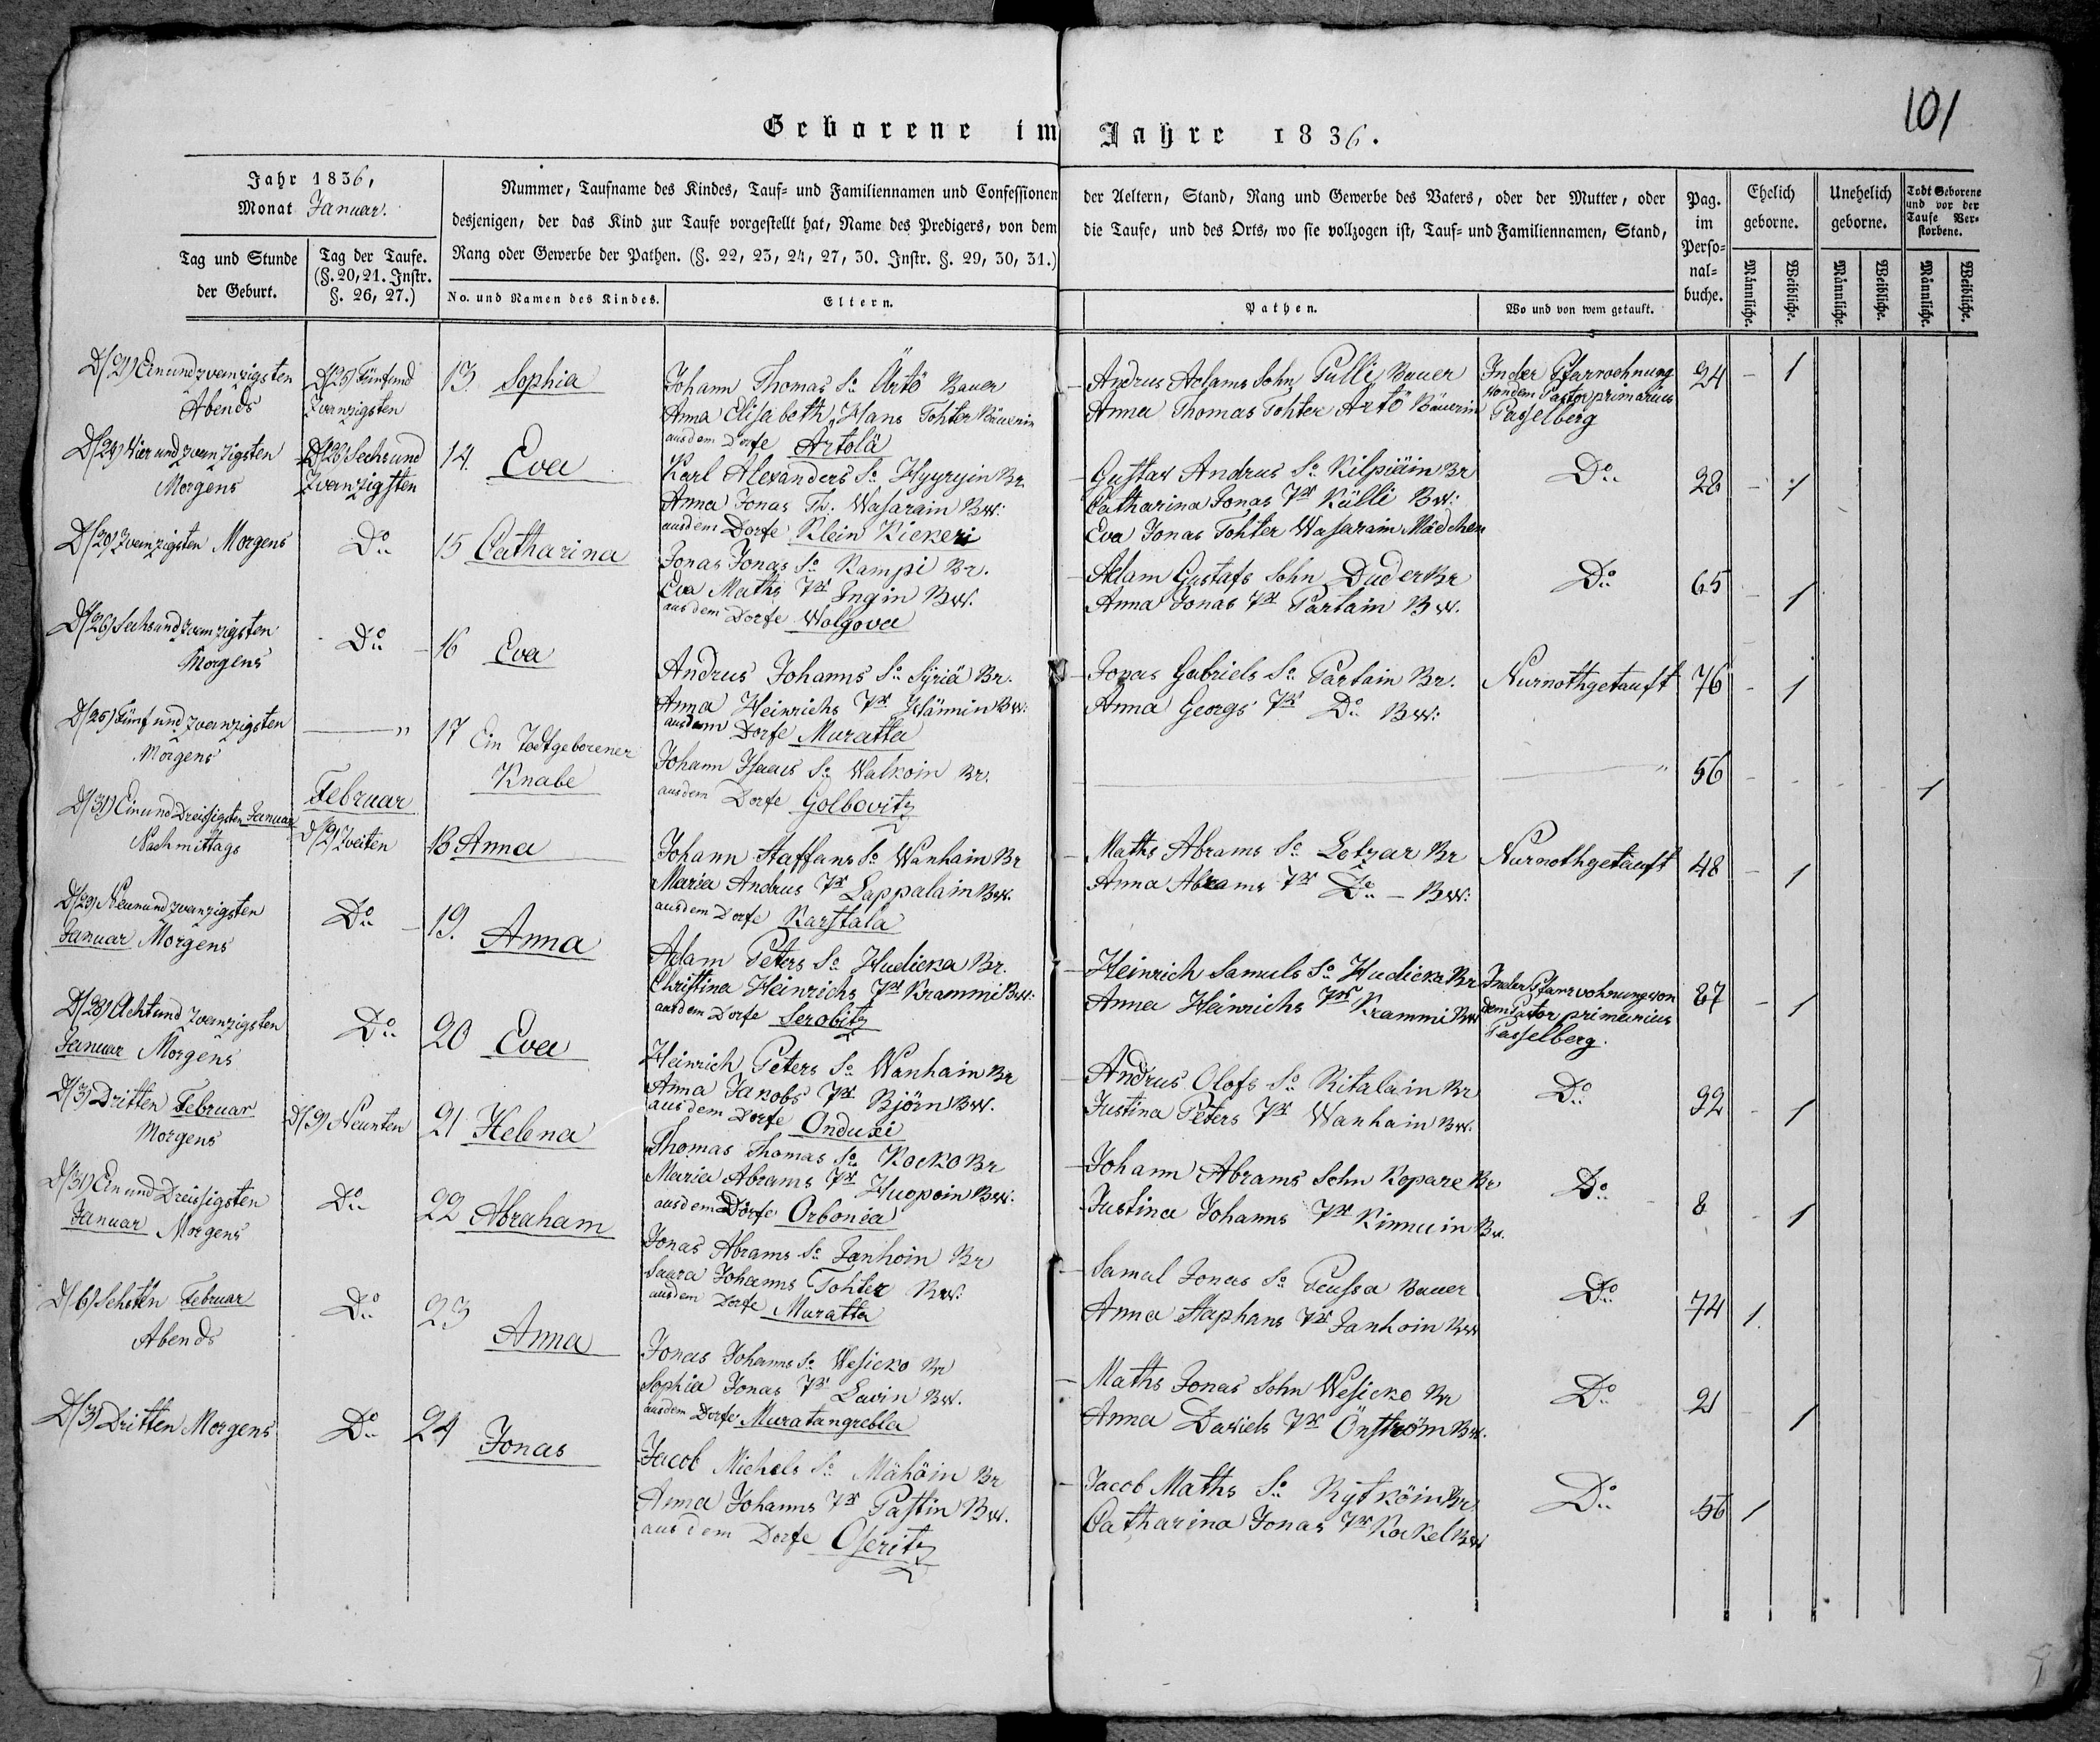 101
Geborene im Jahre 1836.
Jahr 1836,
Monat Januar.
Tag und Stunde
der Geburt.
Tag der Taufe.
(§. 20, 21. Instr.
§. 26, 27.)
Nummer, Taufname des Kindes, Tauf- und Familiennamen und Confessionen der Aeltern, Stand, Rang und Gewerbe des Vaters, oder der Mutter, oder
desjenigen, der das Kind zur Taufe vorgestellt hat, Name des Predigers, von dem die Taufe, und des Orts, wo sie vollzogen ist, Tauf- und Familiennamen, Stand,
Rang oder Gewerbe der Pathen. (§. 22, 23, 24, 27, 30. Instr. §. 29, 30, 31.)
No. und Namen des Kindes.
Eltern.
Pathen.
Wo und von wem getauft.
Pag.
im
Perso-
nal-
buche.
Ehelich
geborne.
Unehelich
geborne.
Todt Geborene
und vor der
Taufe Ver-
storbene.
Männliche.
Weibliche.
Männliche.
Weibliche.
Männliche.
Weibliche.
D/21) Einundzwanzigsten
Abends
D/25) Fünfund
Zwanzigsten
13. Sophia
Johann Thomas So Ärtö Bauer
Anna Elisabeth, Hans Tohter Bäuerin
aus dem Dorfe Artolä
Andrus Adams Sohn Pulli Bauer
Anna Thomas Tohter Artö Bäuerin
In der Pfarrwohnung
von dem Pastor primarius
Passelberg
24 - 1
D/24) Vier und zwanzigsten
Morgens
D/26) Sechs und
Zwanzigsten
14. Eva
Karl Alexanders So Hyyryin Br
Anna Jonas Th. Wasarain Bw:
aus dem Dorfe Klein Kickeri
Gustav Andrus So Kilpiäin Br
Catharina Jonas Tr Külli Bw:
Eva Jonas Tohter Wasarain Mädchen
Do
28 - 1
D/20) Zwanzigsten Morgens
Do
15 Catharina
Jonas Jonas So Kampi Br.
Eva Maths Tr Ingin Bw.
aus dem Dorfe Wolgova
Adam Gustafs Sohn Duder Br
Anna Jonas Tr Partain Bw.
Do
65 - 1
D/26) Sechsundzwanzigsten
Morgens
Do
16 Eva
Andrus Johanns So Syriä Br.
Anna Heinrichs Tr Hännin Bw:
aus dem Dorfe Muratta
Jonas Gabriels So Partain Br.
Anna Georgs Tr Do Bw:
Nurnothgetauft
76 - 1
D/25) Fünf und zwanzigsten
Morgens
17 Ein Todtgeborener
Knabe
Johann Isaacs So Walkoin Br.
aus dem Dorfe Golbovitz
56 1
D/31) Einund Dreissigsten Januar
Nachmittags
Februar
d/2) Zweiten
18 Anna
Johann Staffans So Wanhain Br
Maria Andrus Tr Lappalain Bw.
aus dem Dorfe Karstala
Maths Abrams So Lotzar Br
Anna Abrams Tr Do - Bw:
Nurnothgetauft
48 - 1
D/29) Neunundzwanzigsten
Januar Morgens
Do
19. Anna
Adam Peters So Hudicka Br.
Christina Heinrichs Tr Krammi Bw:
aus dem Dorfe Serobitz
Heinrich Samuls So Hudicka Br
Anna Heinrichs Tr Krammi Bw
In der Pfarrwohnung von
dem Pastor primarius
Passelberg.
87 - 1
D/28) Achtund zwanzigsten
Januar Morgens
Do
20 Eva
Heinrich Peters So Wanhain Br
Anna Jakobs Tr Björn Bw.
aus dem Dorfe Onduxi
Andrus Olofs So Ritalain Br
Justina Peters Tr Wanhain Bw.
Do
32 - 1
D/3) Dritten Februar
Morgens
D/9) Neunten
21 Helena
Thomas Thomas So Kocko Br
Maria Abrams Tr Huopoin Bw.
aus dem Dorfe Orbonia
Johann Abrams Sohn Kopare Br
Justina Johanns Tr Kinnuin Bw.
Do
8 - 1
D/31) Ein und Dreissigsten
Januar Morgens
Do
22 Abraham
Jonas Abrams So Janhoin Br
Saara Johanns Tohter Bw:
aus dem Dorfe Muratta
Samul Jonas So Peussa Bauer
Anna Staphans Tr Janhoin Bw
Do
74 1.
D/6) Sehsten Februar
Abends
Do
23 Anna
Jonas Johanns So Wesicko Br
Sophia Jonas Tr Lavin Bw.
aus dem Dorfe Muratangrebla
Maths Jonas Sohn Wesicko Br
Anna Daniels Tr Önström Bw.
Do
21 - 1
D/3) Dritten Morgens
Do
24 Jonas
Jacob Michels So Mähöin Br
Anna Johanns Tr Pastin Bw.
aus dem Dorfe Oseritz
Jacob Maths So Rytköin Br
Catharina Jonas Tr Kockel Bw
Do
56 1